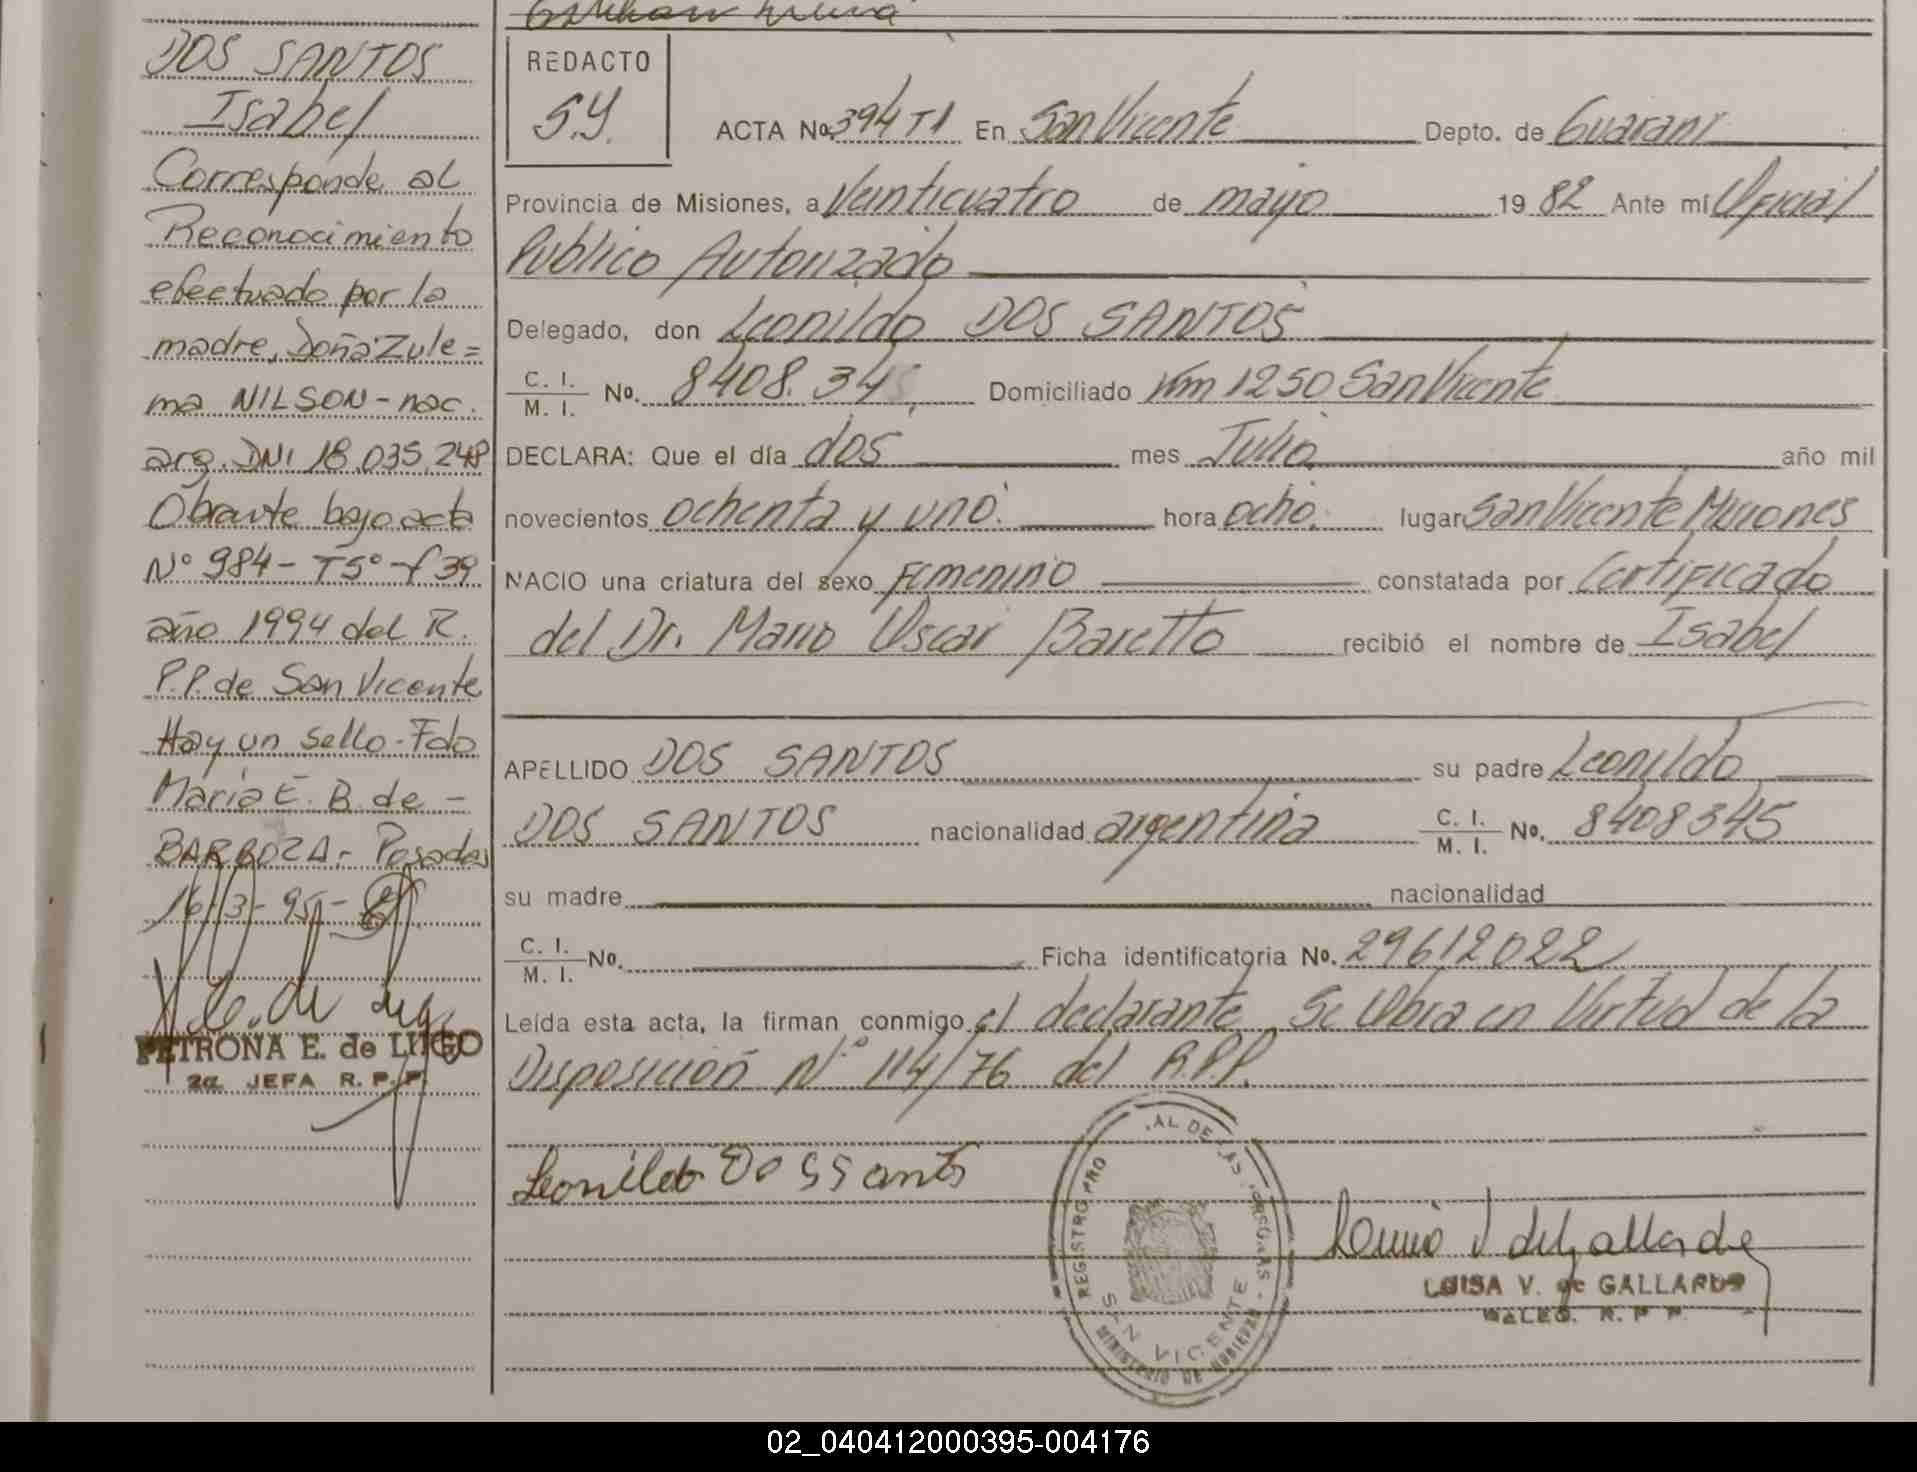 DOS SANTOS
Isabel
Corresponde al
Reconocimiento
efectuado por la
madre, Doña Zule=
ma NILSON - nac.
arg. DNI 18.035.248
Obrante bajo acta
N° 984 - T5° - f 39
año 1994 del R.
P.P. de San Vicente
Hay un sello - Fdo
Maria E. B. de -
BARBOZA - Posadas
16-3-95-
PETRONA E. de LUGO
2a. JEFA R. P. P.
REDACTO
S.Y.
ACTA No. 394 T1 En San Vicente Depto. de Guarani
Provincia de Misiones, a Veinticuatro de mayo 19 82 Ante mi Oficial
Publico Autorizado
Delegado, don Leonildo DOS SANTOS
C. I.
M. I. No. 8408.345 Domiciliado Km 1250 San Vicente
DECLARA: Que el día dos mes Julio año mil
novecientos ochenta y uno. hora ocho. lugar San Vicente Misiones
NACIO una criatura del sexo Femenino constatada por Certificado
del Dr. Mario Oscar Baretto recibió el nombre de Isabel
APELLIDO DOS SANTOS su padre Leonildo
DOS SANTOS nacionalidad argentina C. I.
M. I. No. 8408345
su madre nacionalidad
C. I.
M. I. No. Ficha identificatoria No. 29612022
Leída esta acta, la firman conmigo el declarante. Se Obra en Virtud de la
Disposición N° 114/76 del R.P.P.
Leonildo Dos Santos
REGISTRO PRO AL DE LAS PERSONAS
SAN VICENTE
MINISTERIO DE GOBIERNO
LUISA V. de GALLARDO
R. P. P.
02_040412000395-004176